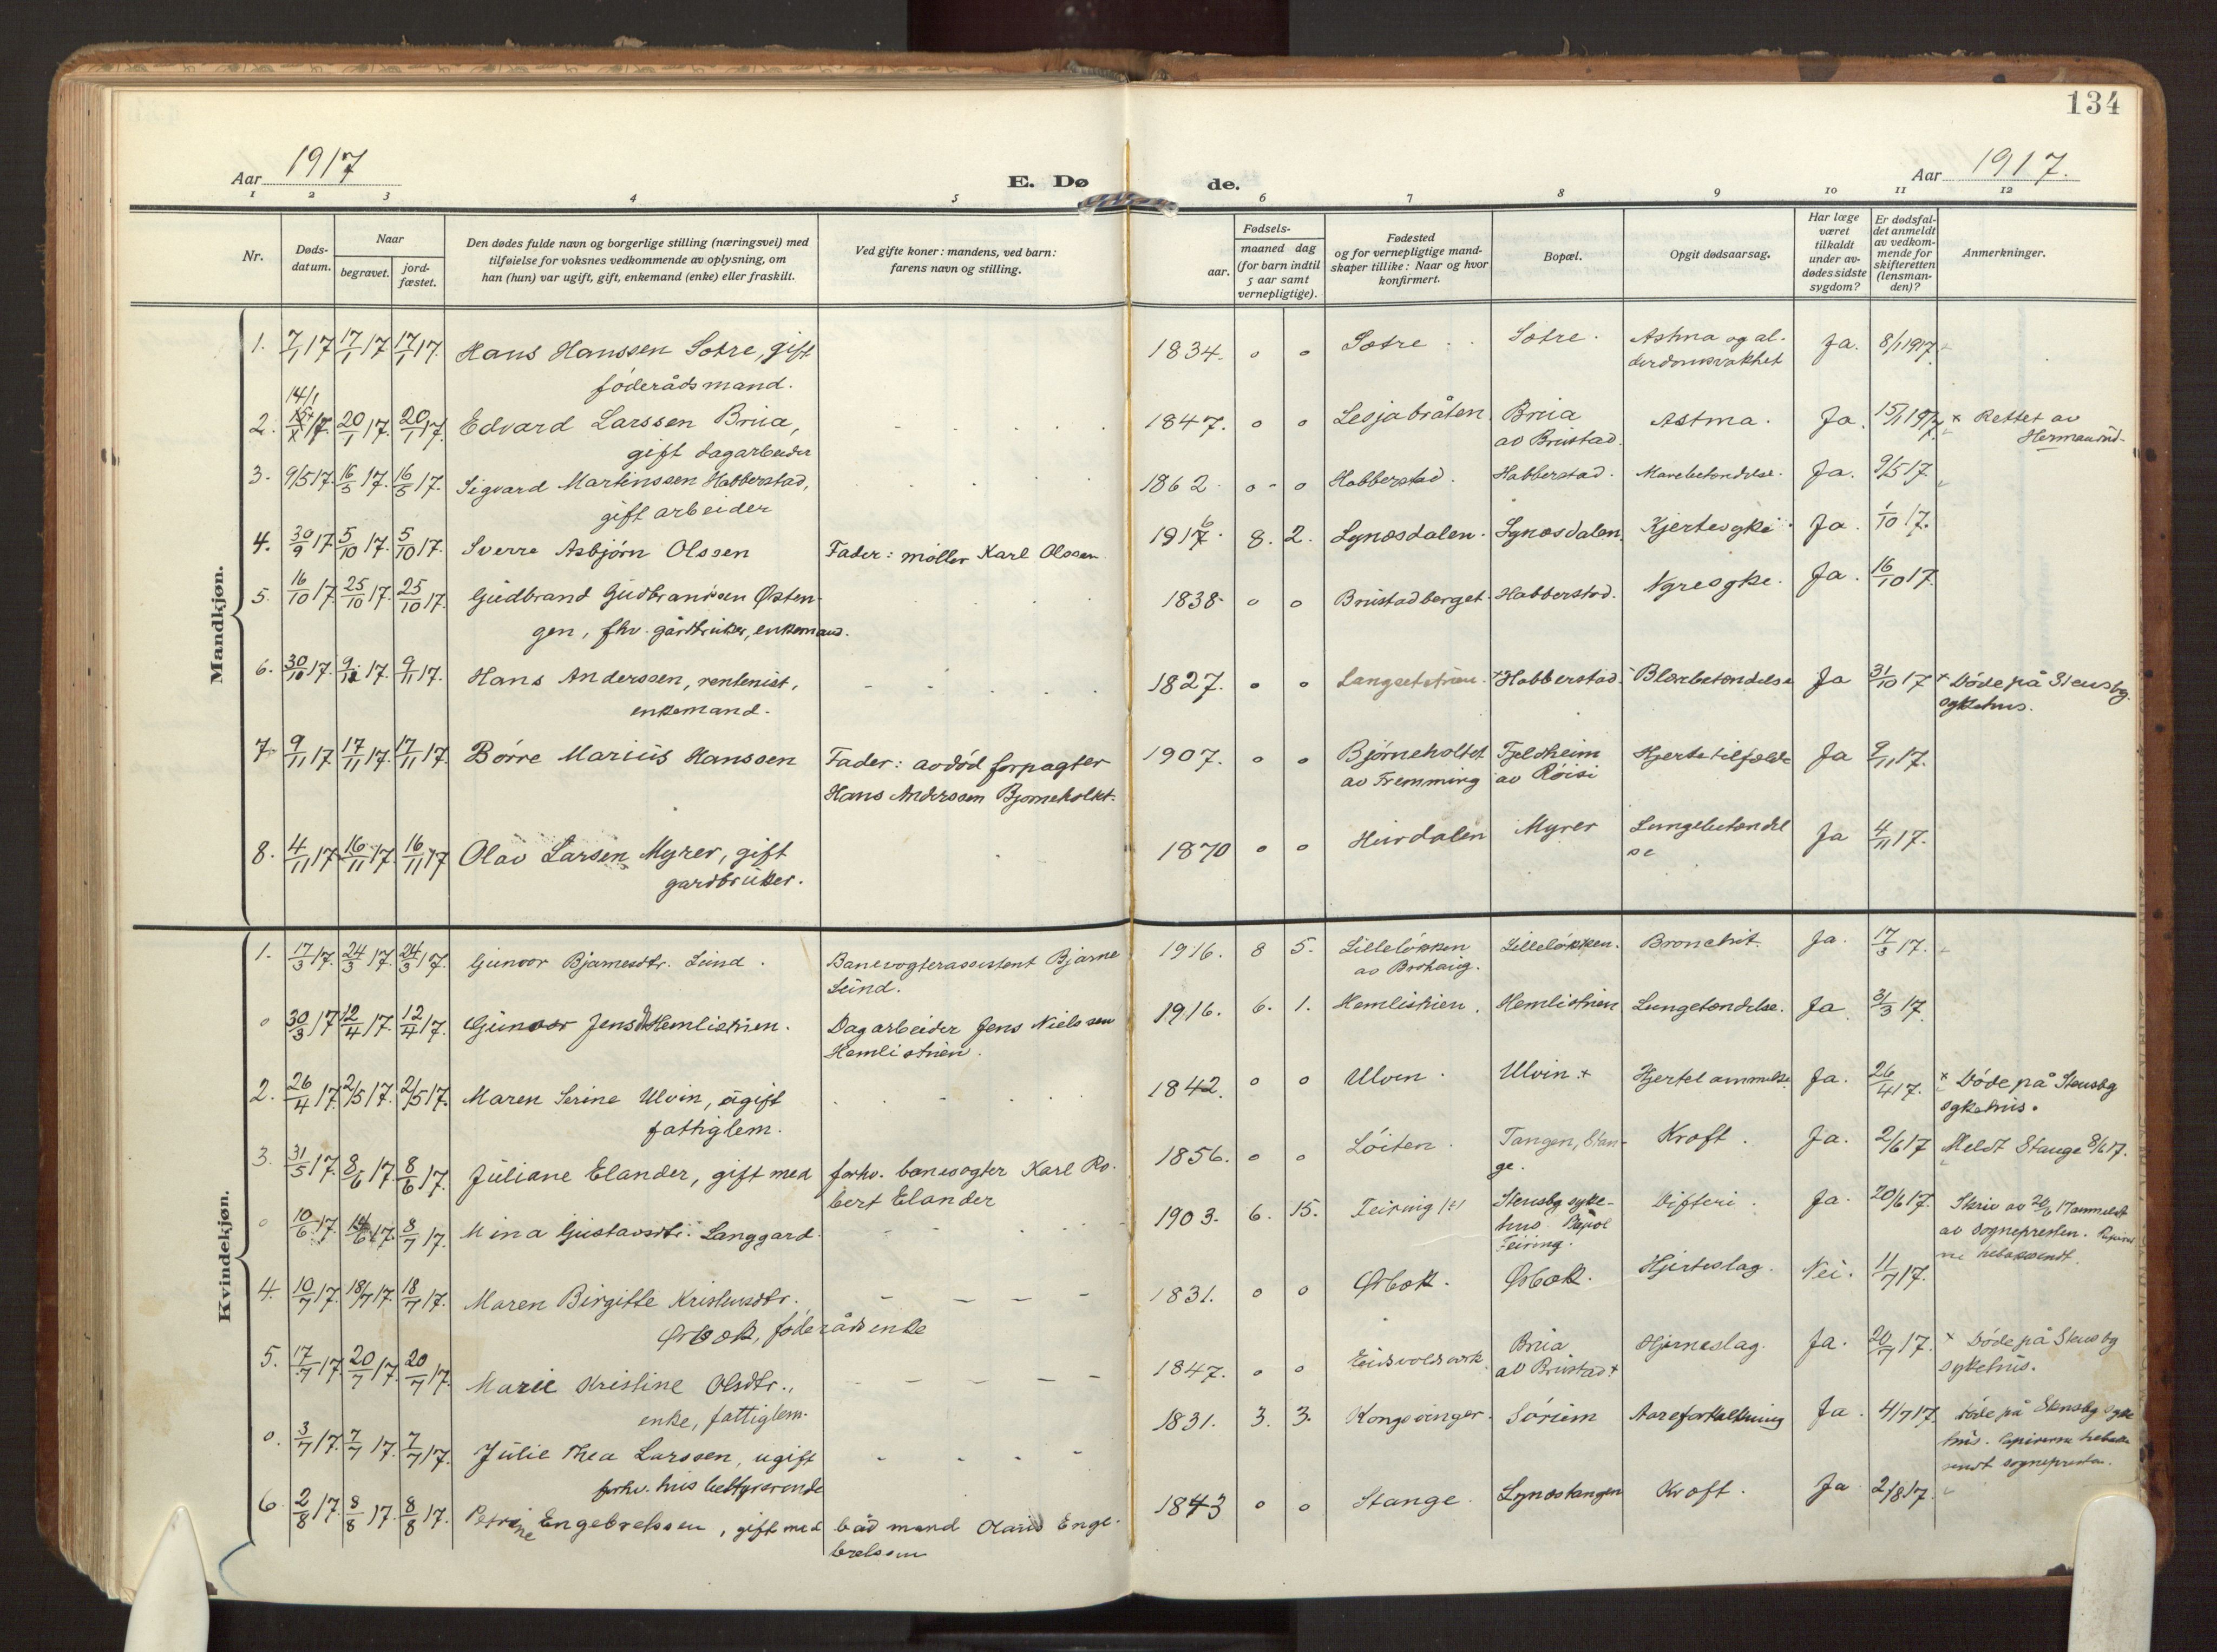 134
Aar 1917
E. Dø
de.
Aar 1917.
1 2 3 4 5 6 7 8 9 10 11 12
Nr.
Døds-
datum.
Naar
begravet.
jord-
fæstet.
Den dødes fulde navn og borgerlige stilling (næringsvei) med
tilføielse for voksnes vedkommende av oplysning, om
han (hun) var ugift, gift, enkemand (enke) eller fraskilt.
Ved gifte koner: mandens, ved barn:
farens navn og stilling.
Fødsels-
aar.
maaned dag
(for barn indtil
5 aar samt
vernepligtige).
Fødested
og for vernepligtige mand-
skaper tillike: Naar og hvor
konfirmert.
Bopæl.
Opgit dødsaarsag.
Har læge
været
tilkaldt
under av-
dødes sidste
sygdom?
Er dødsfal-
det anmeldt
av vedkom-
mende for
skifteretten
(lensman-
den)?
Anmerkninger.
Mandkjøn.
1. 7/1 17 17/1 17 17/1 17. Hans Hanssen Sotre, gift 1834. o o Sotre Sotre. Astma og al- Ja. 8/1 1917
føderådsmand. derdomsvakhet
14/1
2. 15/1 17. 20/1 17. 20/1 17. Edvard Larssen Briia, 1847. o o Lesjabråten. Briia Astma. Ja. 15/1 1917 × Rettet av
gift dagarbeider av Brustad.
3. 9/5 17. 16/5 17. 16/5 17. Sigvard Martinssen Habberstad, 1862. o - o Habberstad. Habberstad. Mavebetændelse. Ja. 9/5 17
gift arbeider
4. 30/9 17 5/10 17. 5/10 17. Sverre Asbjørn Olssen Fader: møller Karl Olssen 1916. 8. 2. Lynæsdalen. Lynæsdalen Ja. 1/10 17.
5. 16/10 17. 25/10 17. 25/10 17. Gudbrand Gudbrandsen Østen- 1838 o o Brustadberget. Habberstad. Nyresyke. Ja. 16/10 17.
gen, fhv. gårdbruker, enkemand.
6. 30/10 17. 9/11 17. 9/11 17. Hans Anderssen, rentenist, 1827. o o × Habberstad. Blærebetændelse Ja 31/10 17 × Døde på Stensby
enkemand. sykehus.
7. 9/11 17 17/11 17. 17/11 17. Børre Marius Hanssen Fader: avdød forpagter 1907. o o Bjørneholtet Fjeldheim Hjertetilfælde Ja 9/11 17.
Hans Anderssen Bjørneholtet. av Fremming av Røisi
8. 4/11 17. 16/11 17. 16/11 17 Olav Larsen Myrer, gift 1870 o o Hurdalen Myrer Lungebetændel Ja 4/11 17.
gardbruker. se
Kvindekjøn.
1. 17/3 17. 24/3 17. 24/3 17. Gunvor Bjarnesdtr. Lund. Banevogterassistent Bjarne 1916. 8 5. Lilleløkken Lilleløkken. Bronchit. Ja. 17/3 17.
Lund. av Brohaug.
o 30/3 17 12/4 17. 12/4 17. Gunvor Jensd Hemlistuen. Dagarbeider Jens Nielssen 1916. 6. 1. Hemlistuen. Hemlistuen Lungetændelse. Ja 31/3 17.
Hemlistuen.
2. 26/4 17. 2/5 17. 2/5 17. Maren Serine Ulvin, ugift 1842. o o Ulven. Ulvin × Hjertelammelse. Ja. 26/4 17. × Døde på Stensby
fattiglem. sykehus.
3. 31/5 17. 8/6 17. 8/6 17. Juliane Elander, gift med forhv. banevogter Karl Ro- 1856. o o Løiten. Tangen, Stan- Kræft. Ja. 2/6 17 Meldt Stange 8/6 17.
bert Elander ge.
o 10/6 17. 14/6 17. 8/7 17. Mina Gustavsdtr. Langgard. 1903. 6. 15. Feiring Stensby syke- Difteri. Ja. 20/6 17. Skriv av 20/6 17 anmeldt
hus. Bopæl av sognepresten.
Feiring. tilbakesendt.
4. 10/7 17. 18/7 17. 18/7 17. Maren Birgitte Kristensdtr. 1831. o o Ørbæk. Ørbæk. Hjerteslag. Nei. 11/7 17.
Ørbæk, føderådsenke
5. 17/7 17. 20/7 17. 20/7 17. Marie Kristine Olsdtr., 1847. o o Eidsvoldsværk. Briia Hjerneslag. Ja. 20/7 17. × Døde på Stensby
enke, fattiglem. av Brustad × sykehus.
o. 3/7 17. 7/7 17. 7/7 17. Julie Thea Larssen, ugift 1831. 3. 3. Kongsvinger. Sørum Aareforkalkning Ja. 4/7 17. Døde på Stensby syke
forhv. husbestyrerinde hus. Papirerne tilbake
sendt sognepresten.
6. 2/8 17. 8/8 17. 8/8 17. Petrine Engebretssen, gift med bådmand Olaus Enge- 1843 o o Stange. Lynæstangen Kræft. Ja 2/8 17.
bretssen